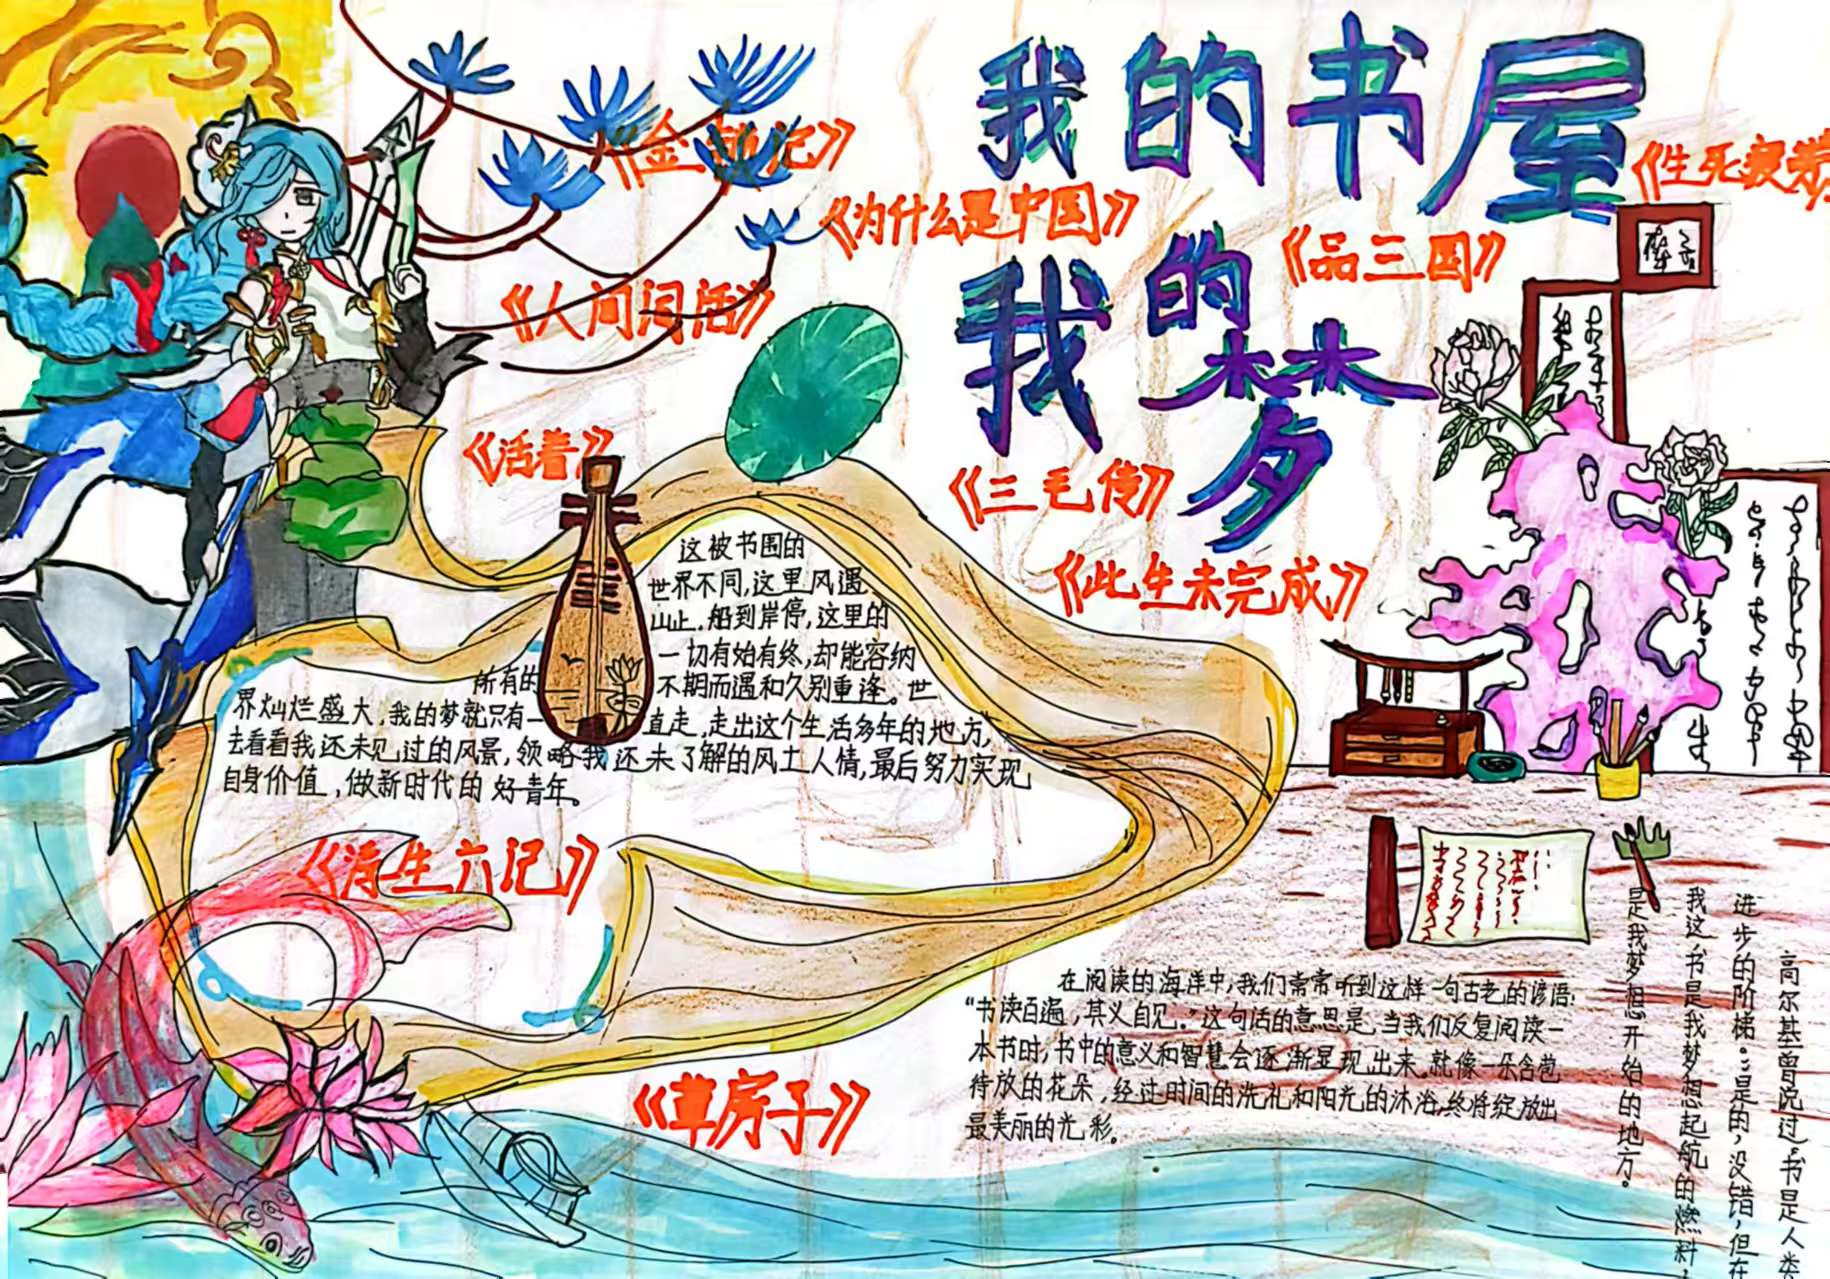 我的书屋
我的梦
《金锁记》
《为什么是中国》
《生死疲劳
《品三国》
《人间闲话》
《活着》
《三毛传》
《此生未完成》
这被书围的
世界不同,这里风遇
山止.船到岸停,这里的
一切有始有终,却能容纳
不期而遇和久别重逢。世
所有的
界灿烂盛大,我的梦就只有一直走,走出这个生活多年的地方,
去看看我还未见过的风景,领略我还未了解的风土人情,最后努力实现
自身价值,做新时代的好青年。
《浮生六记》
《草房子》
在阅读的海洋中,我们常常听到这样一句古老的谚语:
“书读百遍,其义自见。”这句话的意思是,当我们反复阅读一
本书时,书中的意义和智慧会逐渐显现出来.就像一朵含苞
待放的花朵,经过时间的洗礼和阳光的沐浴,终将绽放出
最美丽的光彩。
高尔基曾说过:“书是人类
进步的阶梯。”是的,没错,但在
我这,书是我梦想起航的燃料,
是我梦想开始的地方。